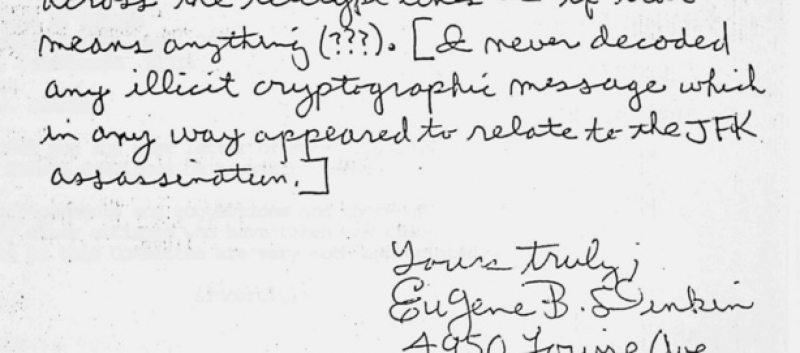 across the teletype lines — if that
means anything (???). [I never decoded
any illicit cryptographic message which
in any way appeared to relate to the JFK
assassination.]
Yours truly,
Eugene B. Dinkin
4950
Ave